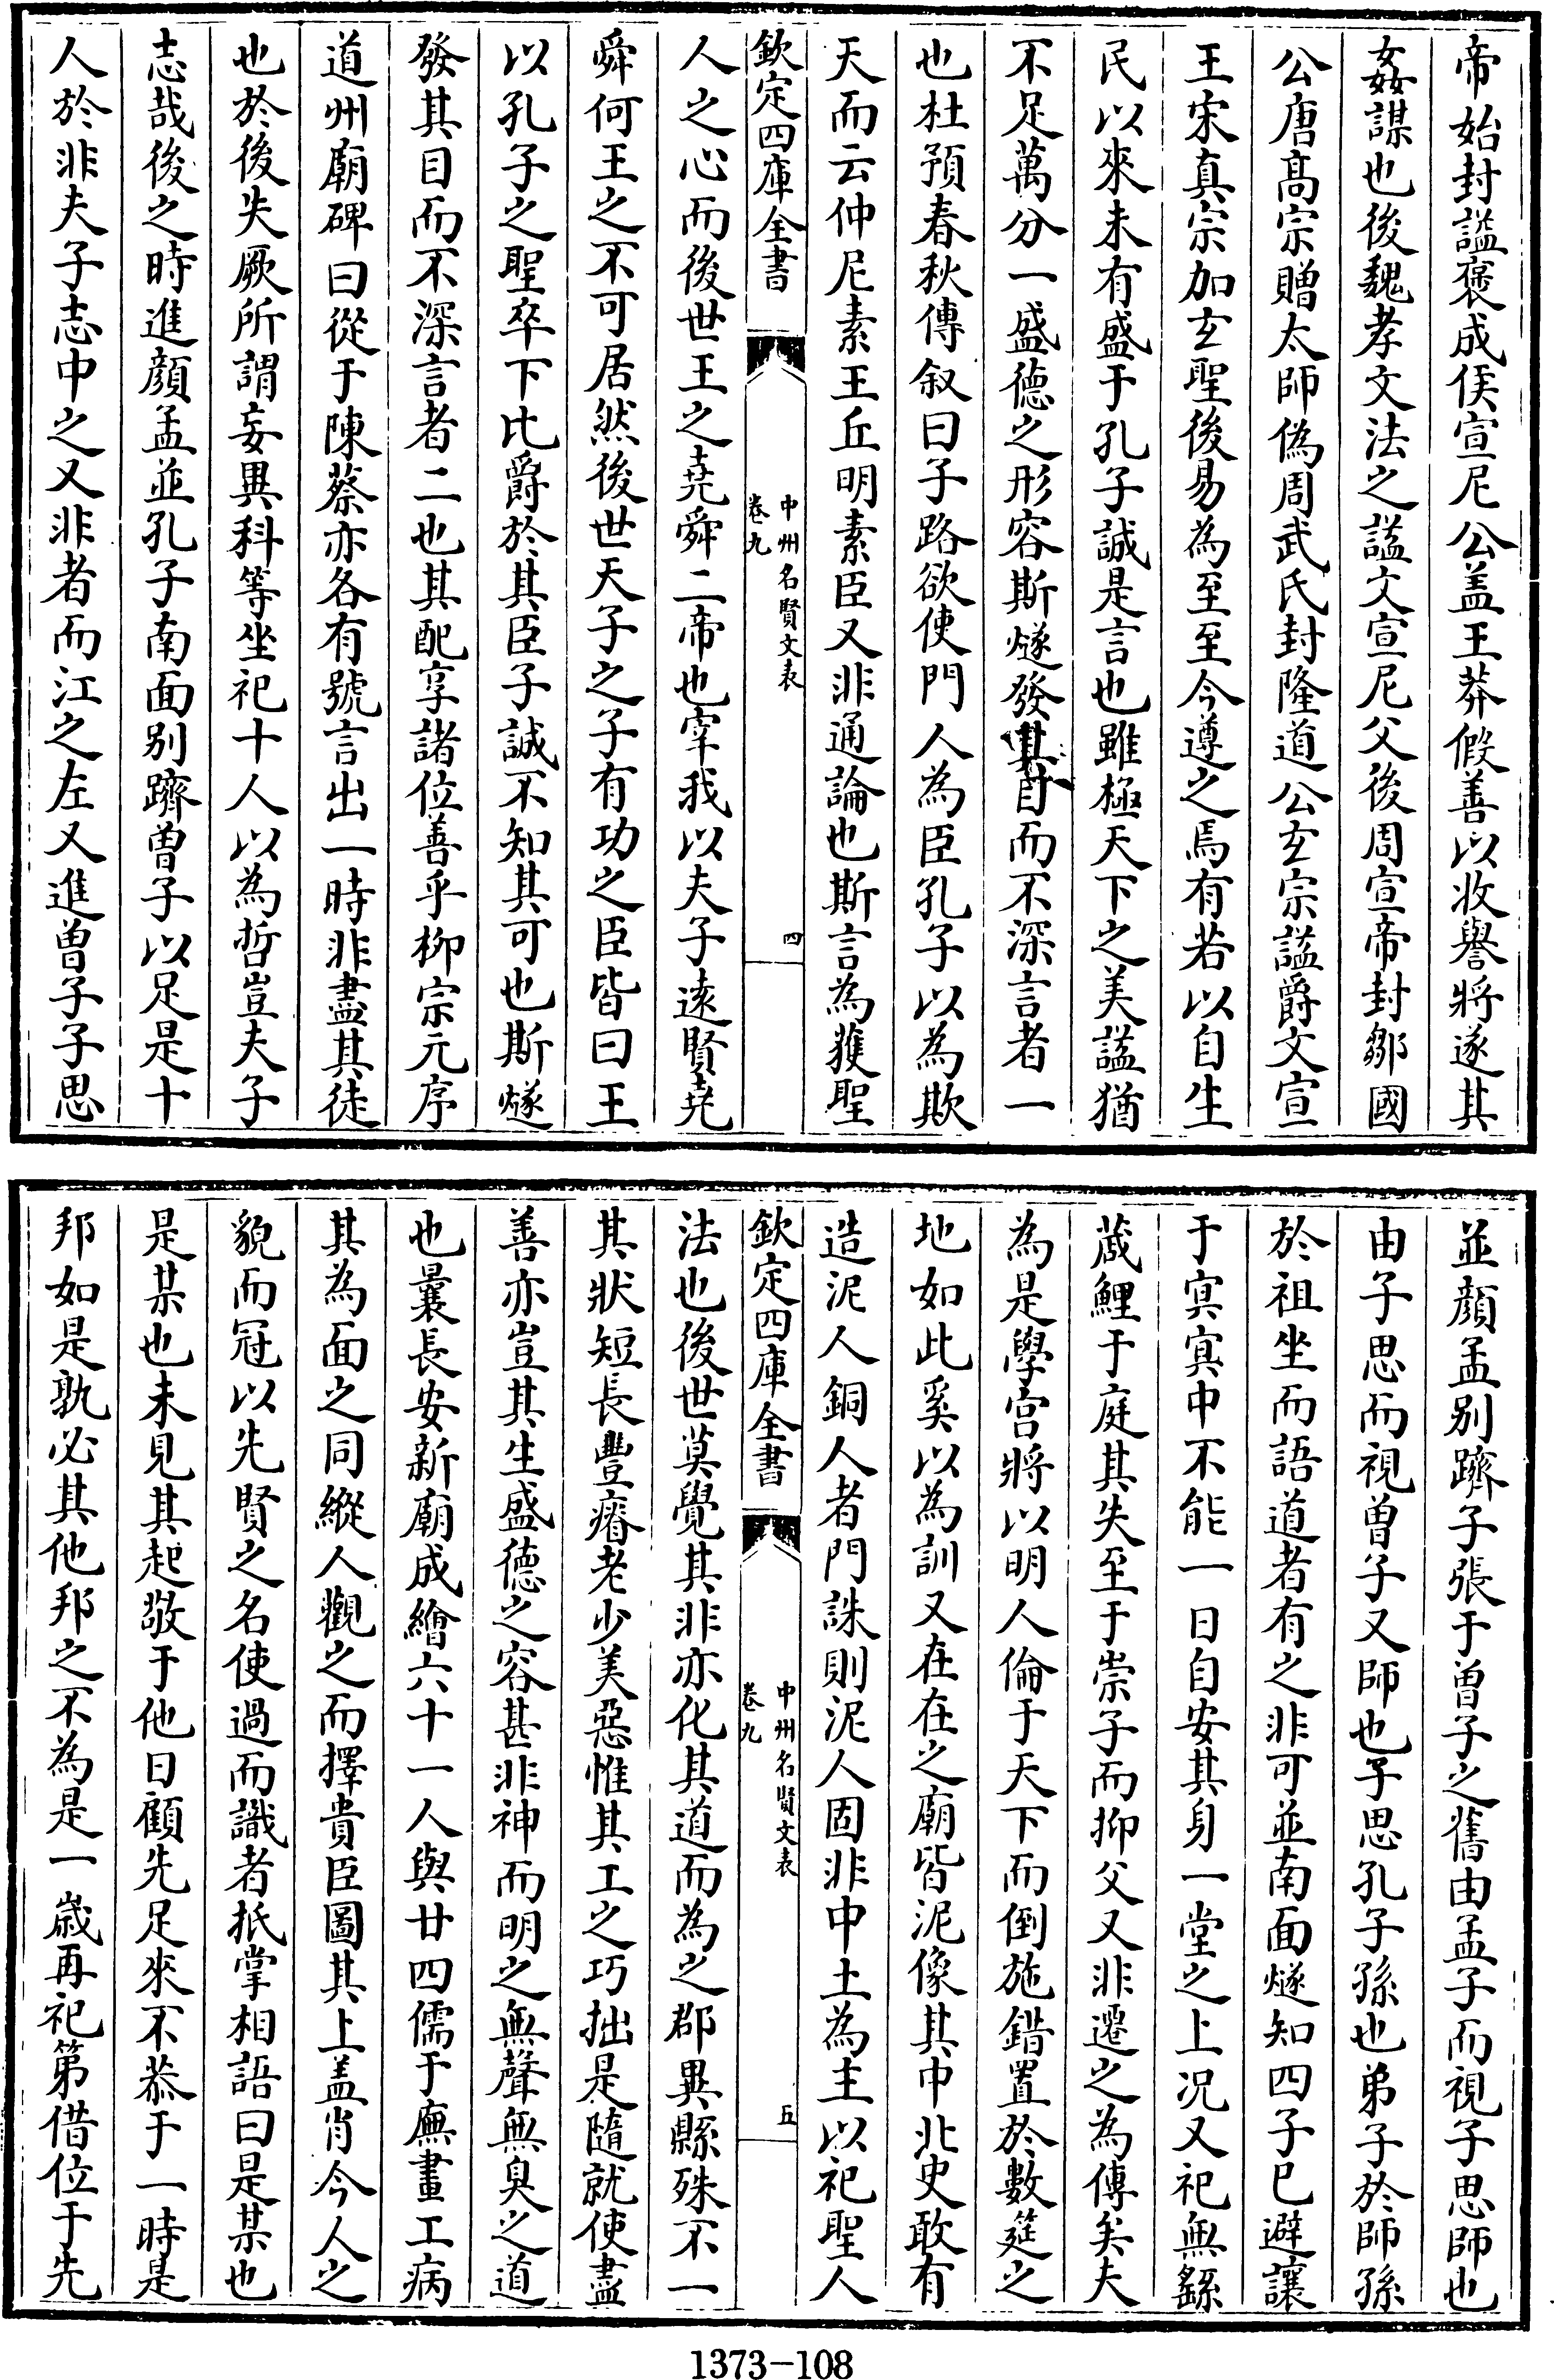 帝始封謚褒成侯宣尼公盖王莽假善以收譽將遂其
姦謀也後魏孝文法之謚文宣尼父後周宣帝封鄒國
公唐髙宗贈太師偽周武氏封隆道公玄宗謚爵文宣
王宋真宗加玄聖後易為至至今遵之焉有若以自生
民以來未有盛于孔子誠是言也雖極天下之美謚猶
不足萬分一盛德之形容斯燧發其目而不深言者一
也杜預春秋傳叙曰子路欲使門人為臣孔子以為欺
天而云仲尼素王丘明素臣又非通論也斯言為獲聖
欽定四庫全書
中州名賢文表
卷九
四
人之心而後世王之堯舜二帝也宰我以夫子逺賢堯
舜何王之不可居然後世天子之子有功之臣皆曰王
以孔子之聖卒下比爵於其臣子誠不知其可也斯燧
發其目而不深言者二也其配享諸位善乎栁宗元序
道州廟碑曰從于陳蔡亦各有號言出一時非盡其徒
也於後失厥所謂妄異科等坐祀十人以為哲豈夫子
志哉後之時進顔孟並孔子南面别躋曽子以足是十
人於非夫子志中之又非者而江之左又進曽子子思
並顔孟别躋子張于曽子之舊由孟子而視子思師也
由子思而視曽子又師也子思孔子孫也弟子於師孫
於祖坐而語道者有之非可並南面燧知四子已避讓
于㝠㝠中不能一日自安其身一堂之上况又祀無繇
蒧鯉于庭其失至于崇子而抑父又非遷之為傳矣夫
為是學宫將以明人倫于天下而倒施錯置於數筵之
地如此奚以為訓又在在之廟皆泥像其中北史敢有
造泥人銅人者門誅則泥人固非中土為主以祀聖人
欽定四庫全書
中州名賢文表
卷九
五
法也後世莫覺其非亦化其道而為之郡異縣殊不一
其狀短長豐瘠老少美惡惟其工之巧拙是隨就使盡
善亦豈其生盛德之容甚非神而明之無聲無臭之道
也曩長安新廟成繪六十一人與廿四儒于廡畫工病
其為面之同縱人觀之而擇貴臣圖其上盖肖今人之
貌而冠以先賢之名使過而識者抵掌相語曰是某也
是某也未見其起敬于他日顧先足來不恭于一時是
邦如是孰必其他邦之不為是一歳再祀第借位于先
1373-108